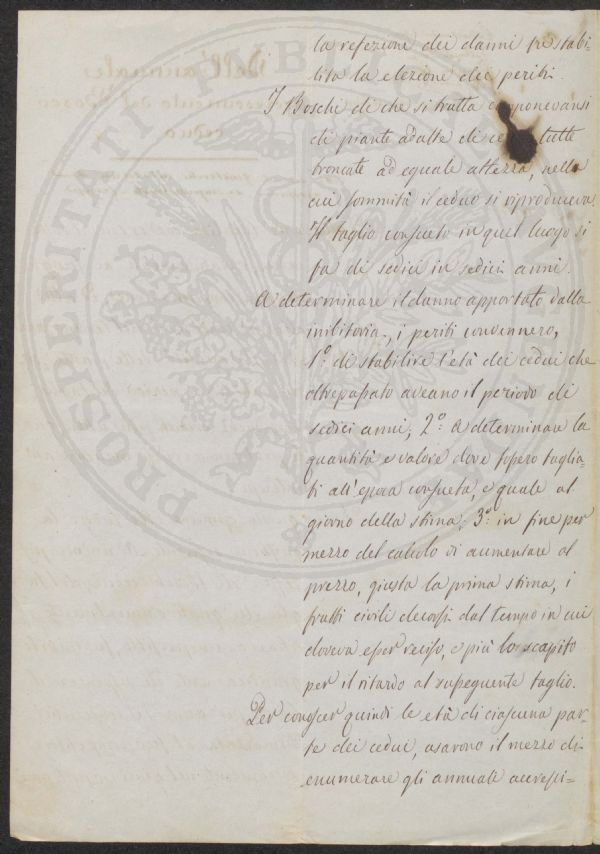 la refezione dei danni fu stabi-
lita la elezione dei periti.
I Boschi di che si tratta componevansi
di piante adulte di tutte
troncate ad eguale altezza, nella
cui sommità il ceduo si riproduceva.
Il taglio consueto in quel luogo si
fa di sedici in sedici anni.
A determinare il danno apportato dalla
inibitoria, i periti convennero,
1.º di stabilire l'età dei cedui che
oltrepassato aveano il periodo di
sedici anni; 2.º a determinare la
quantità e valore dove fossero taglia-
ti all'epoca consueta, e quale al
giorno della stima; 3.º in fine per
mezzo del calcolo di aumentare al
prezzo, giusta la prima stima, i
frutti civili decorsi dal tempo in cui
doveva esser reciso, e più lo scapito
per il ritardo al susseguente taglio.
Per conoscer quindi le età di ciascuna par-
te dei cedui, usarono il mezzo di
enumerare gli annuale accresci-
PROSPERITATI PUBLICAE